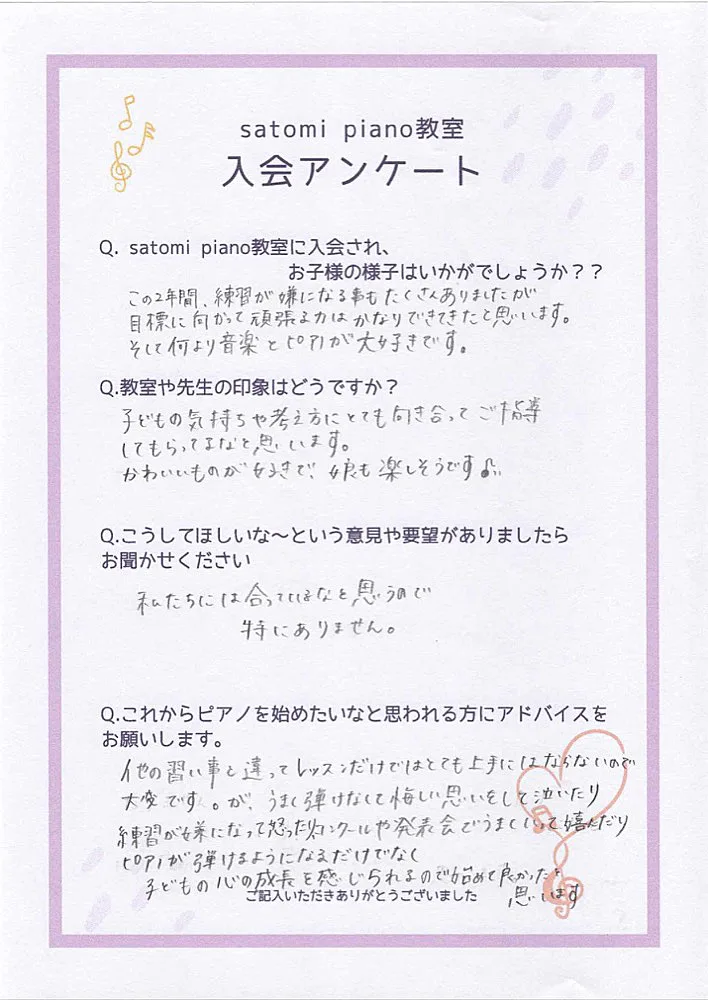 satomi piano教室
入会アンケート
Q. satomi piano教室に入会され、
お子様の様子はいかがでしょうか？？
この2年間、練習が嫌になる事もたくさんありましたが
目標に向かって頑張る力はかなりできてきたと思います。
そして何より音楽とピアノが大好きです。
Q.教室や先生の印象はどうですか？
子どもの気持ちや考え方にとても向き合ってご指導
してもらってるなと思います。
かわいいものが好きで、娘も楽しそうです♪
Q.こうしてほしいな〜という意見や要望がありましたら
お聞かせください
私たちには合っているなと思うので
特にありません。
Q.これからピアノを始めたいなと思われる方にアドバイスを
お願いします。
他の習い事と違ってレッスンだけではとても上手にはならないので
大変です。が、うまく弾けなくて悔しい思いをして泣いたり
練習が嫌になって怒ったりコンクールや発表会でうまくいって嬉んだり
ピアノが弾けるようになるだけでなく
子どもの心の成長を感じられるので始めて良かったと
思います
ご記入いただきありがとうございました